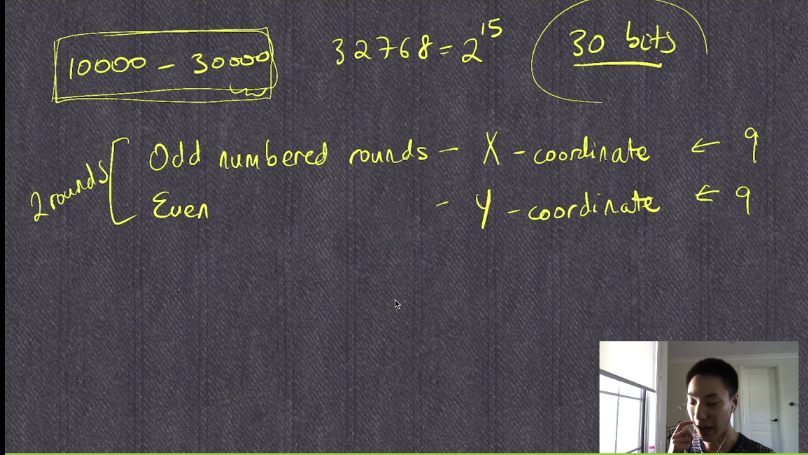 10000 - 30000
32768 = 2^15
30 bits
2 rounds
Odd numbered rounds - X - coordinate ← 9
Even - Y - coordinate ← 9